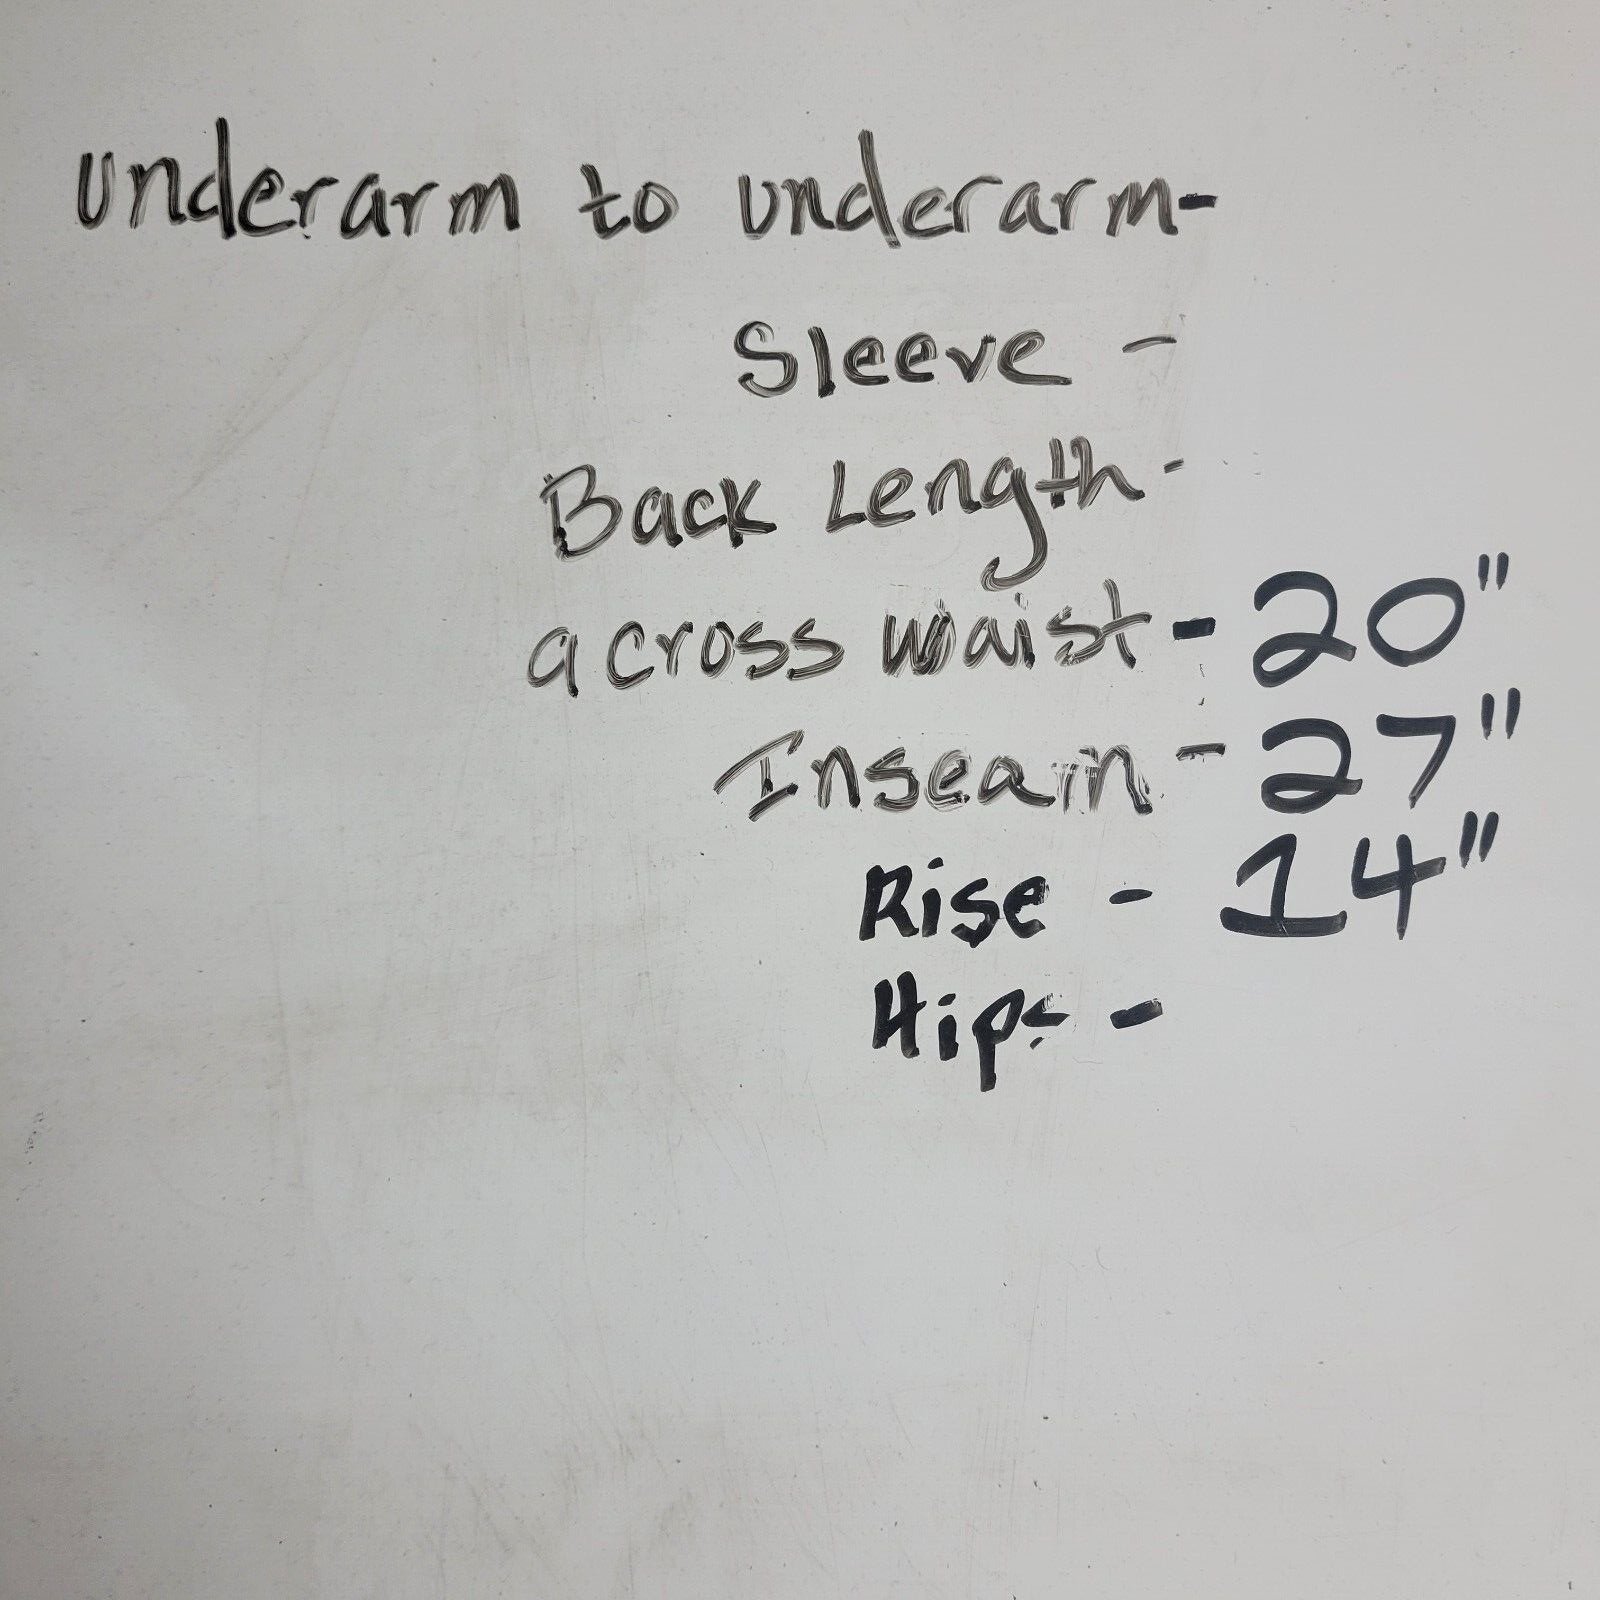 underarm to underarm-
Sleeve -
Back Length-
across waist- 20"
Inseam - 27"
Rise - 14"
Hips -